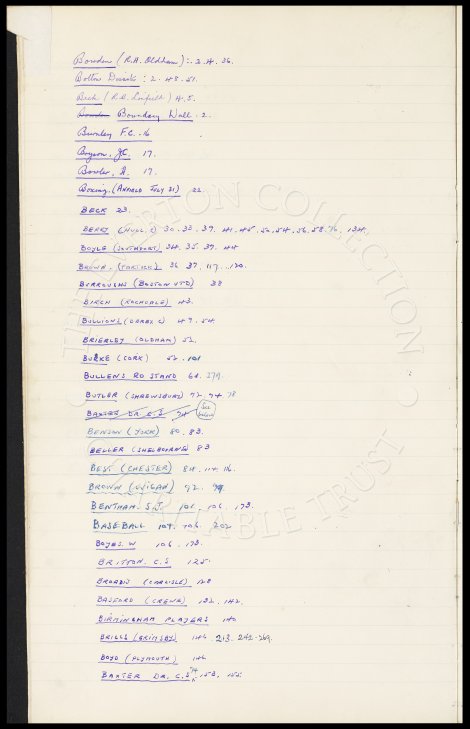 Bowden (R.A. Oldham) : 2. 4. 36.
Bolton Deeside : 2. 43. 51.
Beck (R.D. ) 4. 5.
Bowden Boundary Wall . 2.
Burnley F.C. 16
Boyson, J.C. 17.
Bowler, 17.
Boxing. (Anfield July 21) 22.
BECK 23.
BERRY (HULL. C) 30. 33. 37. 41. 45. 52. 54. 56. 58. 76. 134.
BOYLE (SOUTHPORT) 34. 35. 37. 44
BROWN. 36 37. 117. 120.
BURROUGHS (BOSTON UTD) 38
BIRCH (ROCHDALE) 43.
BULLIONS (DERBY C) 47. 54.
BRIERLEY (OLDHAM) 52.
BURKE (CORK) 52. 101
BULLENS RD STAND 61. 279.
BUTLER (SHREWSBURY) 72. 74 78
BAXTER DR C.S 74 See below
BENSON (YORK) 80. 83.
BELLER (SHELBOURNE) 83
BEST (CHESTER) 84. 114 116.
BROWN (WIGAN) 92. 94.
BENTHAM. S.J. 101. 106. 173.
BASEBALL 104. 106. 202
BOYES. W 106. 173.
BRITTON. C.S 125.
BROADIS (CARLISLE) 128
BASFORD (CREWE) 132. 142.
BIRMINGHAM PLAYERS 140
BRIGGS (GRIMSBY) 146. 213. 242-269.
BOYD (PLYMOUTH) 146
BAXTER DR. C.S 74 153. 155.
THE EVERTON COLLECTION
CHARITABLE TRUST